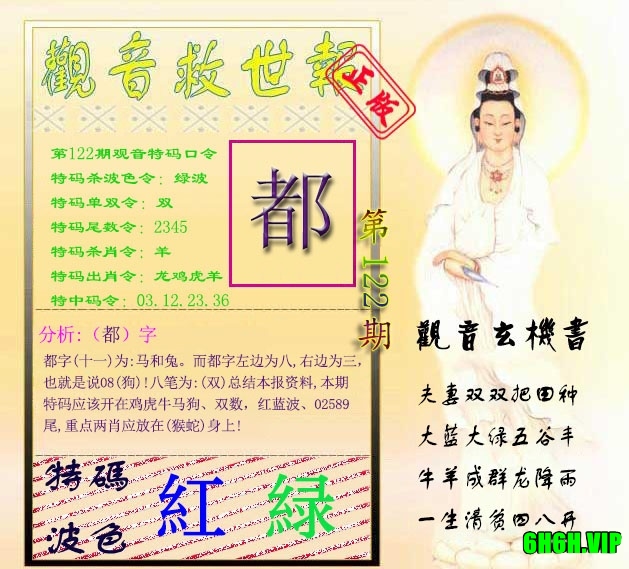 觀音救世報
正版
第122期观音特码口令
特码杀波色令：绿波
特码单双令：双
特码尾数令：2345
特码杀肖令：羊
特码出肖令：龙鸡虎羊
特中码令：03.12.23.36
都
第122期
分析:（都）字
都字(十一)为:马和兔。而都字左边为八,右边为三,
也就是说08(狗)!八笔为:(双)总结本报资料,本期
特码应该开在鸡虎牛马狗、双数，红蓝波、02589
尾,重点两肖应放在(猴蛇)身上!
特碼
波色
紅 绿
觀音玄機書
夫妻双双把田种
大蓝大绿五谷丰
牛羊成群龙降雨
一生清贫四八开
6H6H.VIP